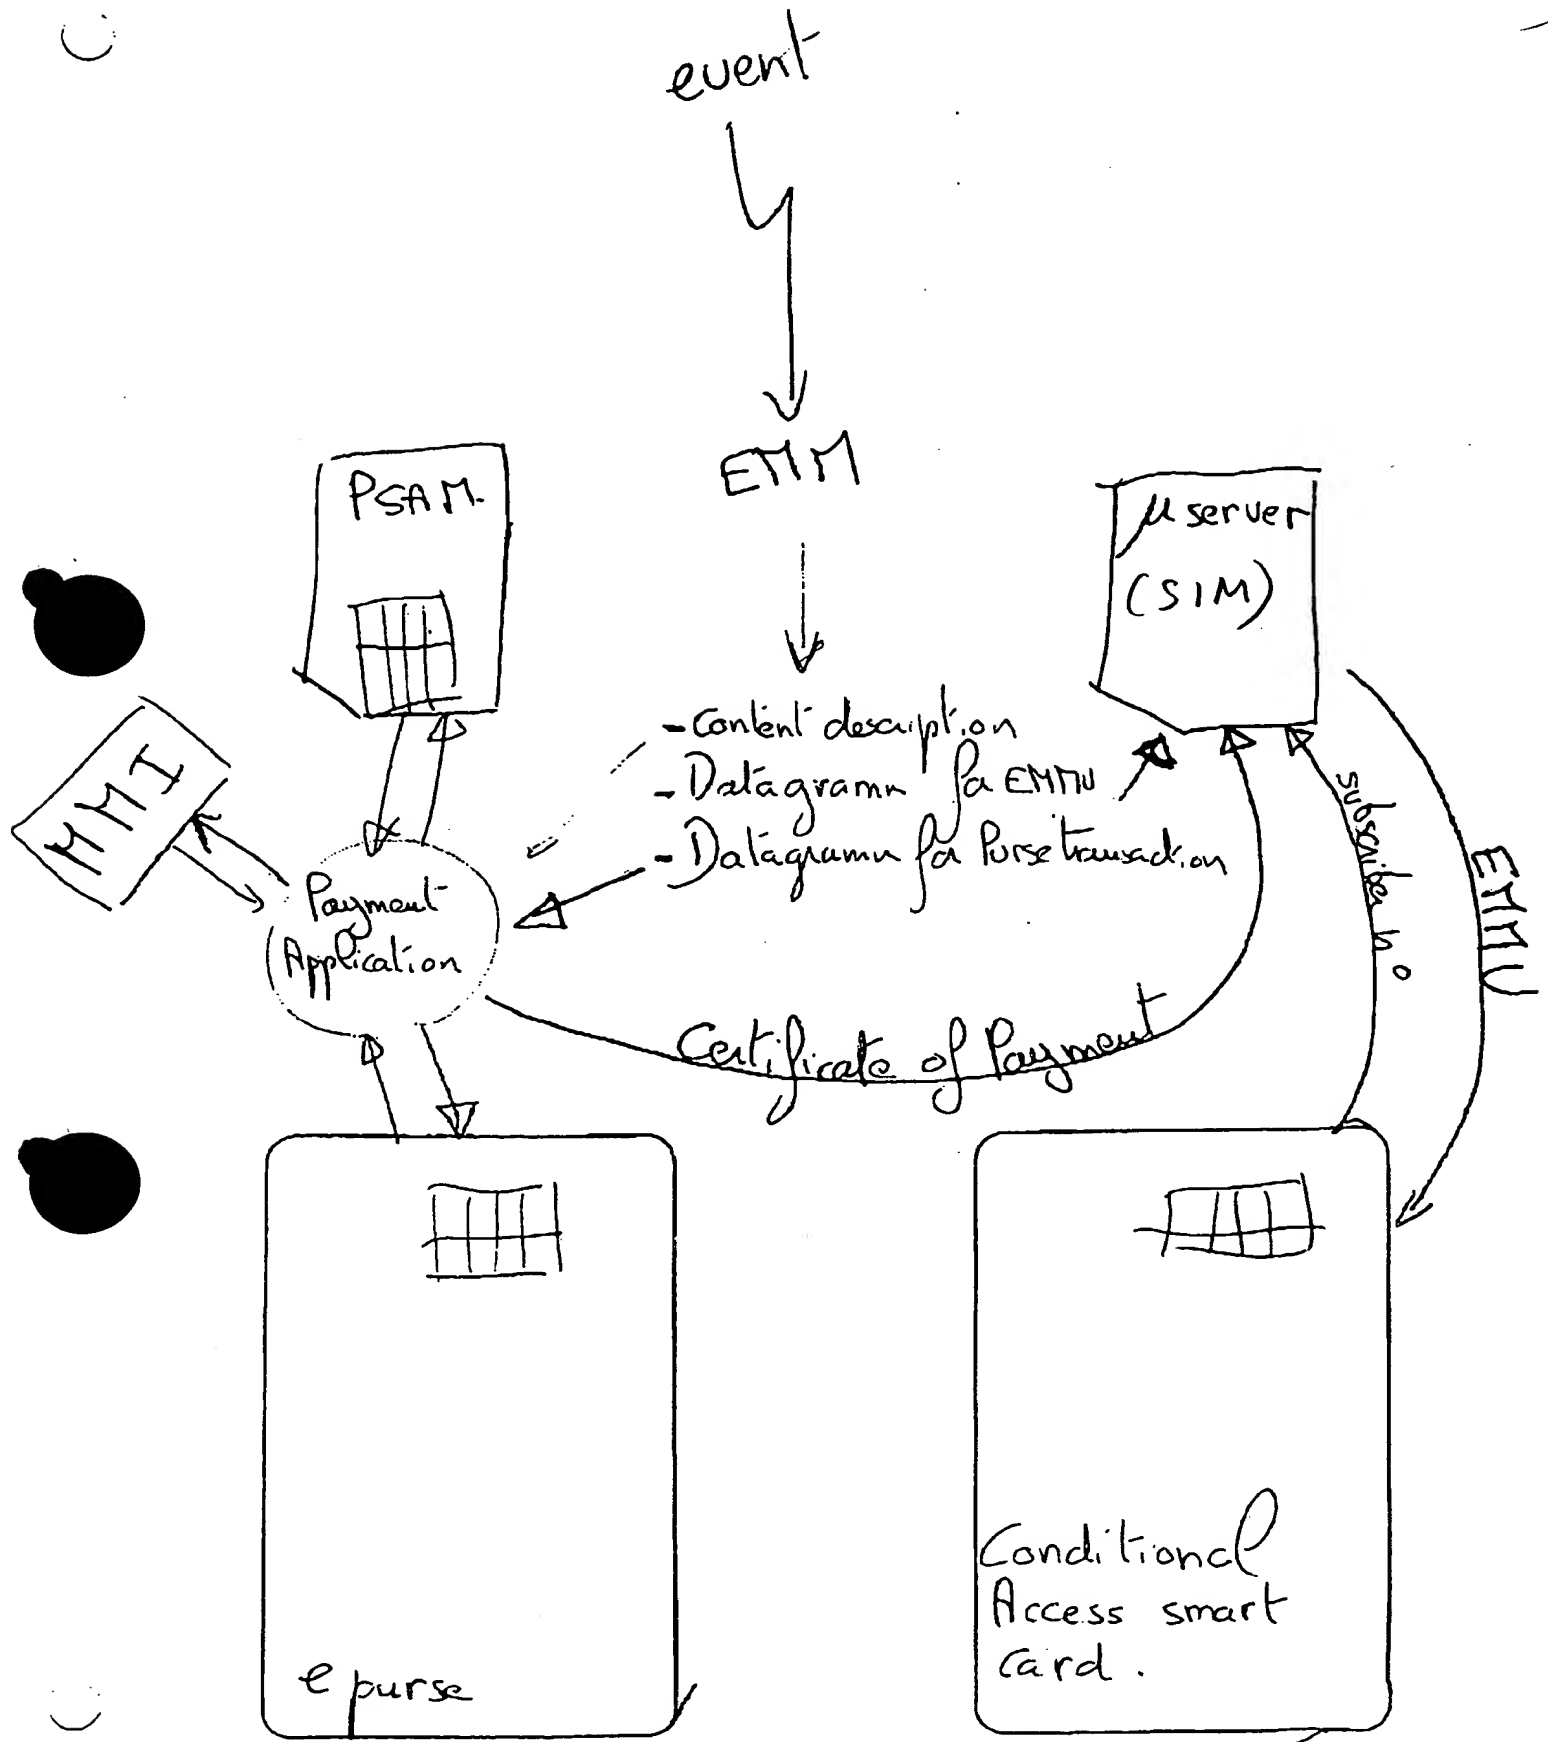 event
EMM
PSAM.
µ server
(SIM)
MMI
- Content description
- Datagramm for EMMU
- Datagramm for Purse transaction
subscriber n°
EMMU
Payment
Application
Certificate of Payment
e purse
Conditional
Access smart
card.